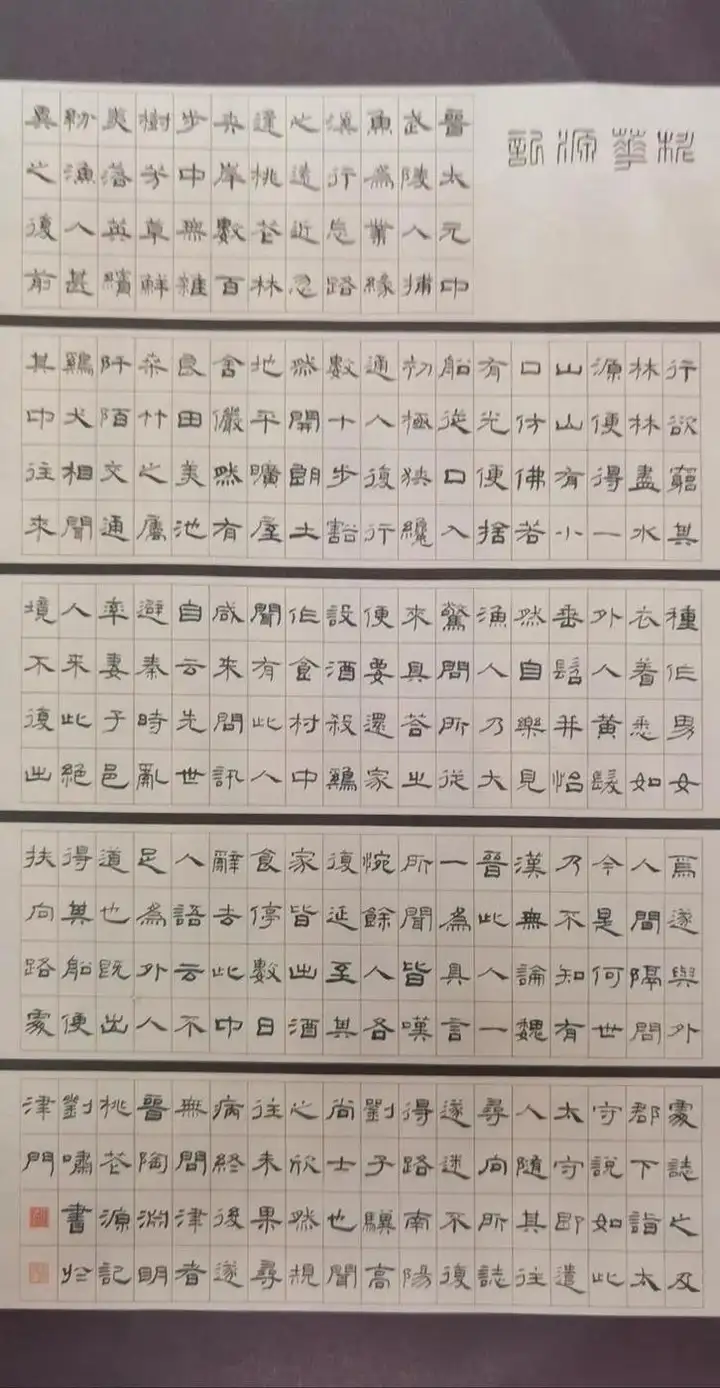 桃華源記
晉太元中
武陵人捕
魚為業緣
溪行忘路
之遠近忽
逢桃花林
夾岸數百
步中無雜
樹芳草鮮
美落英繽
紛漁人甚
異之復前
行欲窮其
林林盡水
源便得一
山山有小
口仿佛若
有光便捨
船從口入
初極狹纔
通人復行
數十步豁
然開朗土
地平曠屋
舍儼然有
良田美池
桑竹之屬
阡陌交通
鷄犬相聞
其中往來
種作男女
衣着悉如
外人黃髮
垂髫并怡
然自樂見
漁人乃大
驚問所從
來具答之
便要還家
設酒殺鷄
作食村中
聞有此人
咸來問訊
自云先世
避秦時亂
率妻子邑
人來此絕
境不復出
焉遂與外
人間隔問
今是何世
乃不知有
漢無論魏
晉此人一
一為具言
所聞皆嘆
惋餘人各
復延至其
家皆出酒
食停數日
辭去此中
人語云不
足為外人
道也既出
得其船便
扶向路處
處誌之及
郡下詣太
守說如此
太守即遣
人隨其往
尋向所誌
遂迷不復
得路南陽
劉子驥高
尚士也聞
之欣然規
往未果尋
病終後遂
無問津者
晉陶淵明
桃花源記
劉嘯書於
津門